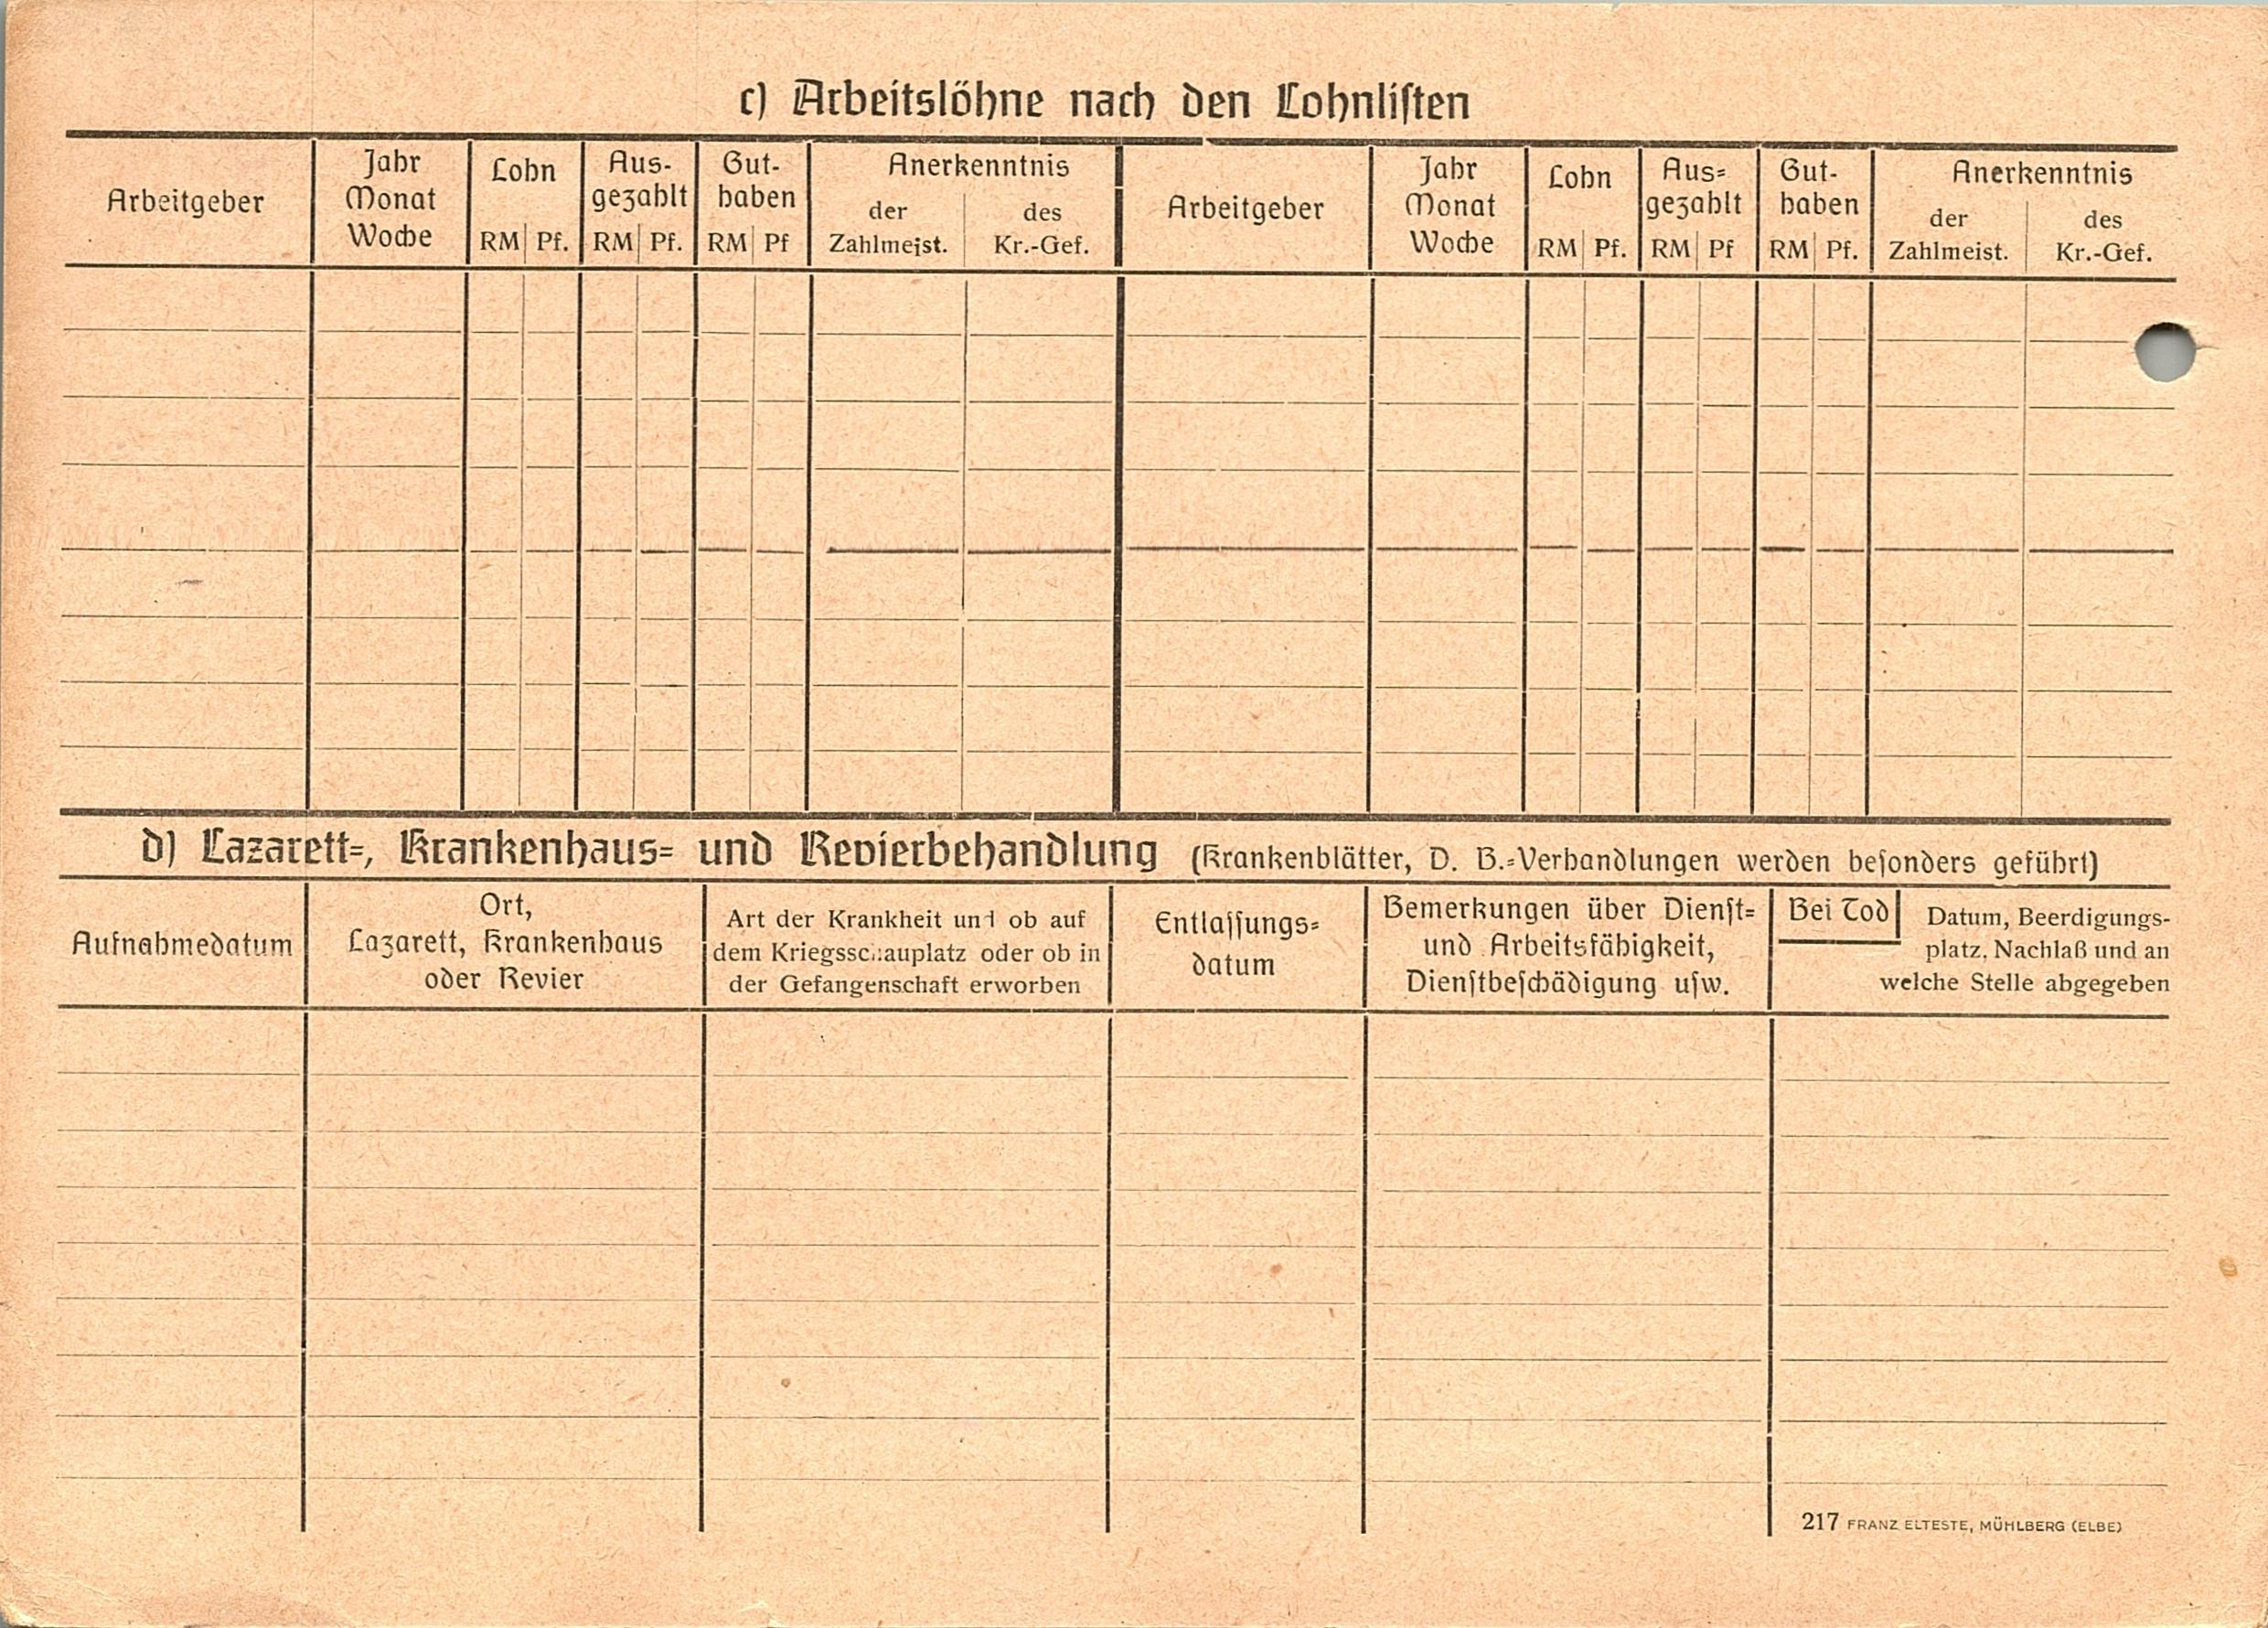 c) Arbeitslöhne nach den Lohnlisten
Arbeitgeber
Jahr
Monat
Woche
Lohn
RM Pf.
Aus-
gezahlt
RM Pf.
Gut-
haben
RM Pf
Anerkenntnis
der
Zahlmeist.
des
Kr.-Gef.
Arbeitgeber
Jahr
Monat
Woche
Lohn
RM Pf.
Aus-
gezahlt
RM Pf
Gut-
haben
RM Pf.
Anerkenntnis
der
Zahlmeist.
des
Kr.-Gef.
d) Lazarett-, Krankenhaus- und Revierbehandlung (Krankenblätter, D. B.-Verhandlungen werden besonders geführt)
Aufnahmedatum
Ort,
Lazarett, Krankenhaus
oder Revier
Art der Krankheit und ob auf
dem Kriegsschauplatz oder ob in
der Gefangenschaft erworben
Entlassungs-
datum
Bemerkungen über Dienst-
und Arbeitsfähigkeit,
Dienstbeschädigung usw.
Bei Tod
Datum, Beerdigungs-
platz, Nachlaß und an
welche Stelle abgegeben
217 FRANZ ELTESTE, MÜHLBERG (ELBE)